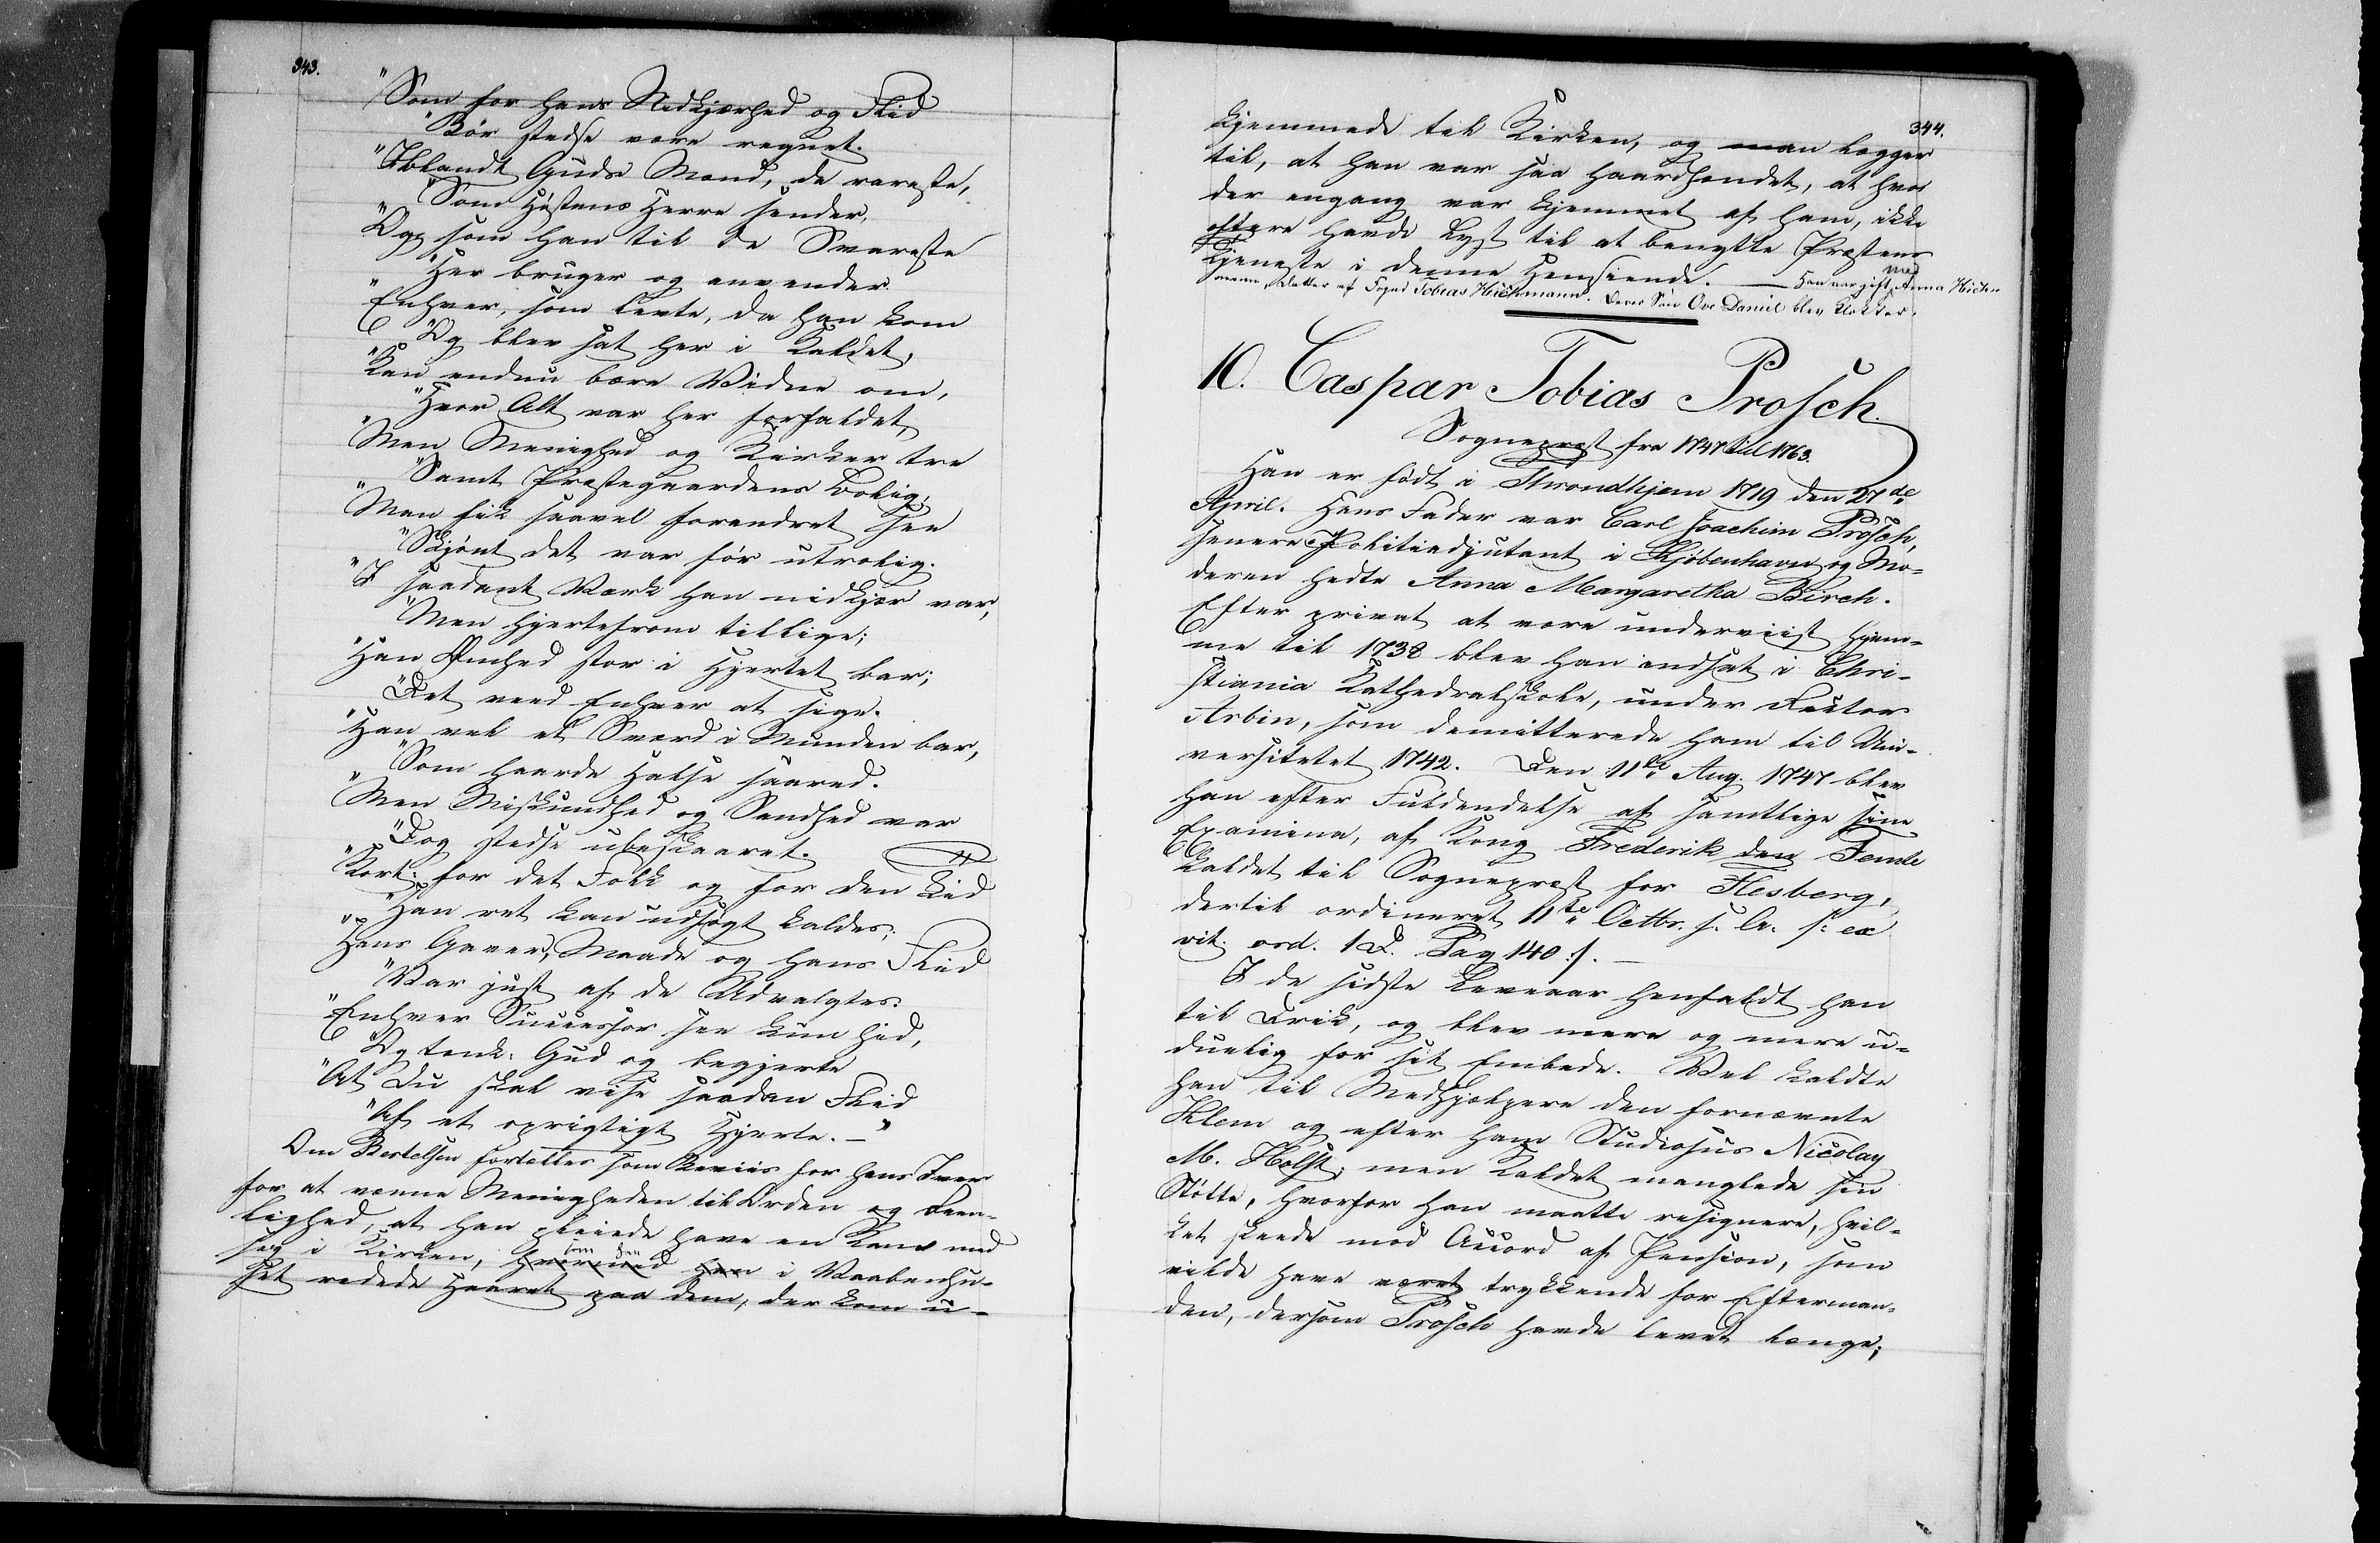 343.
"Som for hans Nidkjærhed og Flid
"Bør stedse være regnet.
"Iblandt Guds Mænd, de rareste,
"Som Høstens Herre sender,
"Og som han til de Svareste
"Her bruger og anvender.
"Enhver, som levte, da han kom
"Og blev sat her i Kaldet,
"Kan endnu bære Vidne om,
"Hvor Alt var her forfaldet,
"Men Menighed og Kirker tre
"Samt Præstegaardens Bolig,
"Man fik saavel forandret see
"Skjønt det var før utrolig.
"I saadant Værk han nidkjær var,
"Men hjertefrom tillige;
"Han Ømhed stor i Hjertet bar;
"Det veed Enhver at sige.
"Han vel et Sværd i Munden bar,
"Som haarde Halse saared.
"Men Miskundhed og Sandhed var
"Dog stedse ubeskaaret.
"Kort: for det Folk og for den Tid
"Han ret kan udsøgt kaldes;
"Hans Gaver, Maade og hans Flid
"Var just af de Udvalgtes.
"Enhver Successor see kun hid,
"Og tænk: Gud og begjerte
"At Du skal vise saadan Flid
"Af et oprigtigt Hjerte. – "
Om Bertelsen fortælles som Beviis for hans Iver
for at vænne Menigheden til Orden og Reen-
lighed, at han pleiede have en Kam med
sig i Kirken, hvormed han som han i Vaabenhu-
set redede Haaret paa dem, der kom u-
344.
kjæmmede til Kirken, og man lægger
til, at han var saa haardhændet, at hvo
der engang var kjæmmet af ham, ikke
oftere havde Lyst til at benytte Præstens
Tjeneste i denne Henseende. — Han var gift med Anna Hich-
mann, Datter af Foged Tobias Hichmann. Deres Søn Ove Daniel blev Klokker.
10. Caspar Tobias Prosch.
Sognepræst fra 1747 til 1763.
Han er født i Throndhjem 1719 den 27de
April. Hans Fader var Carl Joachim Prosch,
senere Politiadjutant i Kjøbenhavn og Mo-
deren hedte Anna Margaretha Birch.
Efter privat at være underviist hjem-
me til 1738 blev han indsat i Chri-
stiania Kathedralskole, under Rector
Arbin, som demitterede ham til Uni-
versitetet 1742. Den 11te Aug. 1747 blev
han efter Fuldendelse af samtlige sine
Examina, af Kong Frederik den Femte
kaldet til Sognepræst for Flesberg,
dertil ordineret 11te Octbr. s. A. /: ex
vit. ord. 1 D. Pag 140 :/. —
I de sidste Leveaar henfaldt han
til Drik, og blev mere og mere u-
duelig for sit Embede. Vel kaldte
han til Medhjælpere den fornævnte
Klem og efter ham Studiosus Nicolay
M. Holst; men Kaldet manglede sin
Støtte, hvorfor han maatte resignere, hvil-
ket skeede mod Accord af Pension, som
vilde have været trykkende for Efterman-
den, dersom Prosch havde levet længe;